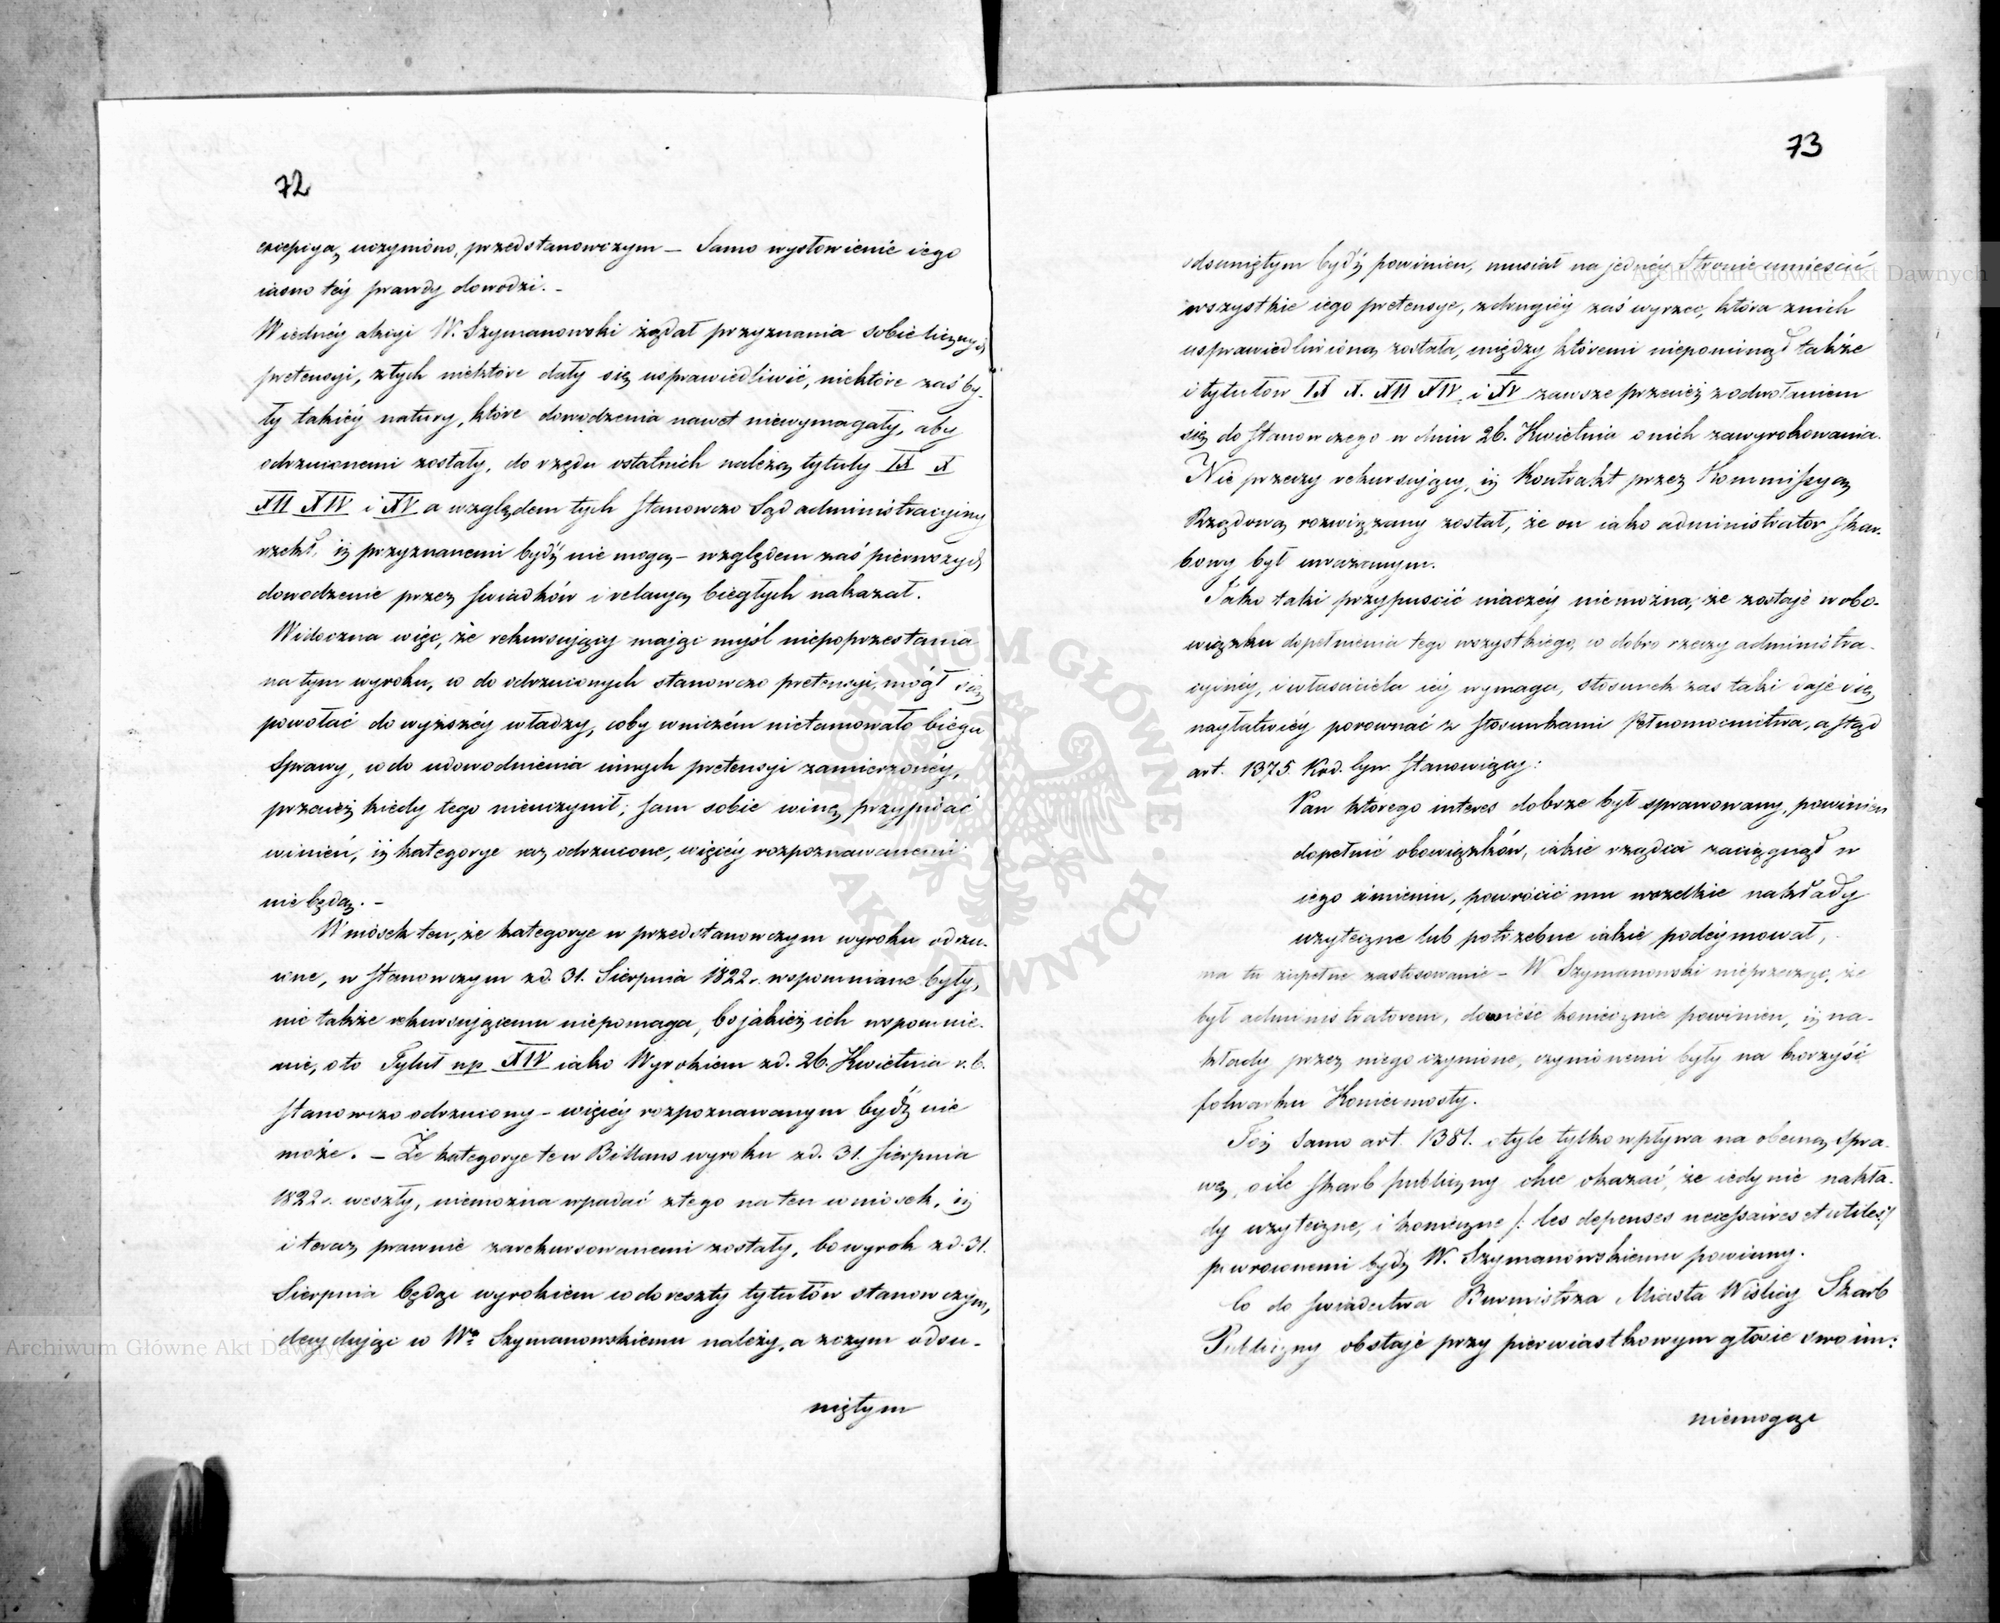 72
excepcyą uczynioną, przedstanowczym — Samo wysłowienie iego
iasno téy prawdy dowodzi. –
W iednéy akcyi W. Szymanowski żądał przyznania sobie licznych
pretensyi, z tych niektóre dały się usprawiedliwić, niektóre zaś by-
ły takiéy natury, które dowodzenia nawet niewymagały, aby
odrzuconemi zostały, do rzędu ostatnich należą tytuły IX X
XII XIV i XV a względem tych stanowczo Sąd administracyiny
rzekł, iż przyznanemi bydź nie mogą – względem zaś pierwszych
dowodzenie przez świadków i relacyą biegłych nakazał.
Widoczna więc, że rekursuiący maiąc myśl niepoprzestania
na tym wyroku, co do odrzuconych stanowczo pretensyi, mógł się
powołać do wyższéy władzy, coby wniczém nietamowało biegu
sprawy, co do udowodnienia innych pretensyi zamierzonéy,
przecież kiedy tego nieuczynił, sam sobie winę przypisać
winien, iż kategorye raz odrzucone, więcéy rozpoznawanemi
nie będą. –
Wniosek ten, że kategorye w przedstanowczym wyroku odrzu-
cone, w stanowczym z d. 31. Sierpnia 1822 r. wspomniane były,
nic także rekursuiącemu niepomaga, bo jakież ich wspomnie-
nie, oto Tytuł np XIV iako Wyrokiem z d. 26. Kwietnia r. b.
stanowczo odrzucony – więcéy rozpoznawanym bydź nie
może. – Że kategorye te w Billans wyroku z d. 31. Sierpnia
1822 r. weszły, niemożna wpadać z tego na ten wniosek, iż
i teraz prawnie zarekursowanemi zostały, bo wyrok z d. 31.
Sierpnia będąc wyrokiem co do reszty tytułów stanowczym,
decyduiąc co Wu Szymanowskiemu należy, a z czym odsu-
niętym
73
odsuniętym bydź powinien, musiał na jednéy stronie umieścić
wszystkie iego pretensye, z drugiéy zaś wyrzec, która z nich
usprawiedliwioną została, między któremi niepominął także
i tytułów IX X. XII XIV. i XV zawsze przecież z odwołaniem
się do stanowczego w dniu 26. Kwietnia o nich zawyrokowania.
Nie przeczy rekursuiący, iż Kontrakt przez Kommissyą
Rządową rozwiązany został, że on iako administrator skar-
bowy był uważanym.
Jako taki przypuścić inaczéy niemożna, że zostaje w obo-
wiązku dopełnienia tego wszystkiego, co dobro rzeczy administra-
cyinéy, i właściciela iéy wymaga, stosunek zaś taki daje się
nayłatwiéy porownać z stosunkami Pełnomocnictwa, a stąd
art. 1375. Kod. Cyw. stanowiący:
Pan którego interes dobrze był sprawowany, powinien
dopełnić obowiązków, iakie rządca zaciągnął w
iego imieniu, powrócić mu wszelkie nakłady
użyteczne lub potrzebne iakie podéymował,
ma tu zupełne zastosowanie – W Szymanowski nieprzecząc, że
był administratorem, dowieść koniecznie powinien, iż na-
kłady przez niego czynione, czynionemi były na korzyść
folwarku Koniecmosty.
Toż samo art. 1381. o tyle tylko wpływa na obecną spra-
wę, o ile Skarb publiczny chce okazać, że iedynie nakła-
dy użyteczne, i konieczne /: les depenses necessaires et utiles:/
powróconemi bydź W. Szymanowskiemu powinny.
Co do świadectwa Burmistrza Miasta Wislicy Skarb
Publiczny obstaje przy pierwiastkowym głosie swoim:
niemogąc
Archiwum Główne Akt Dawnych
Archiwum Główne Akt Dawnych
ARCHIWUM GŁÓWNE AKT DAWNYCH